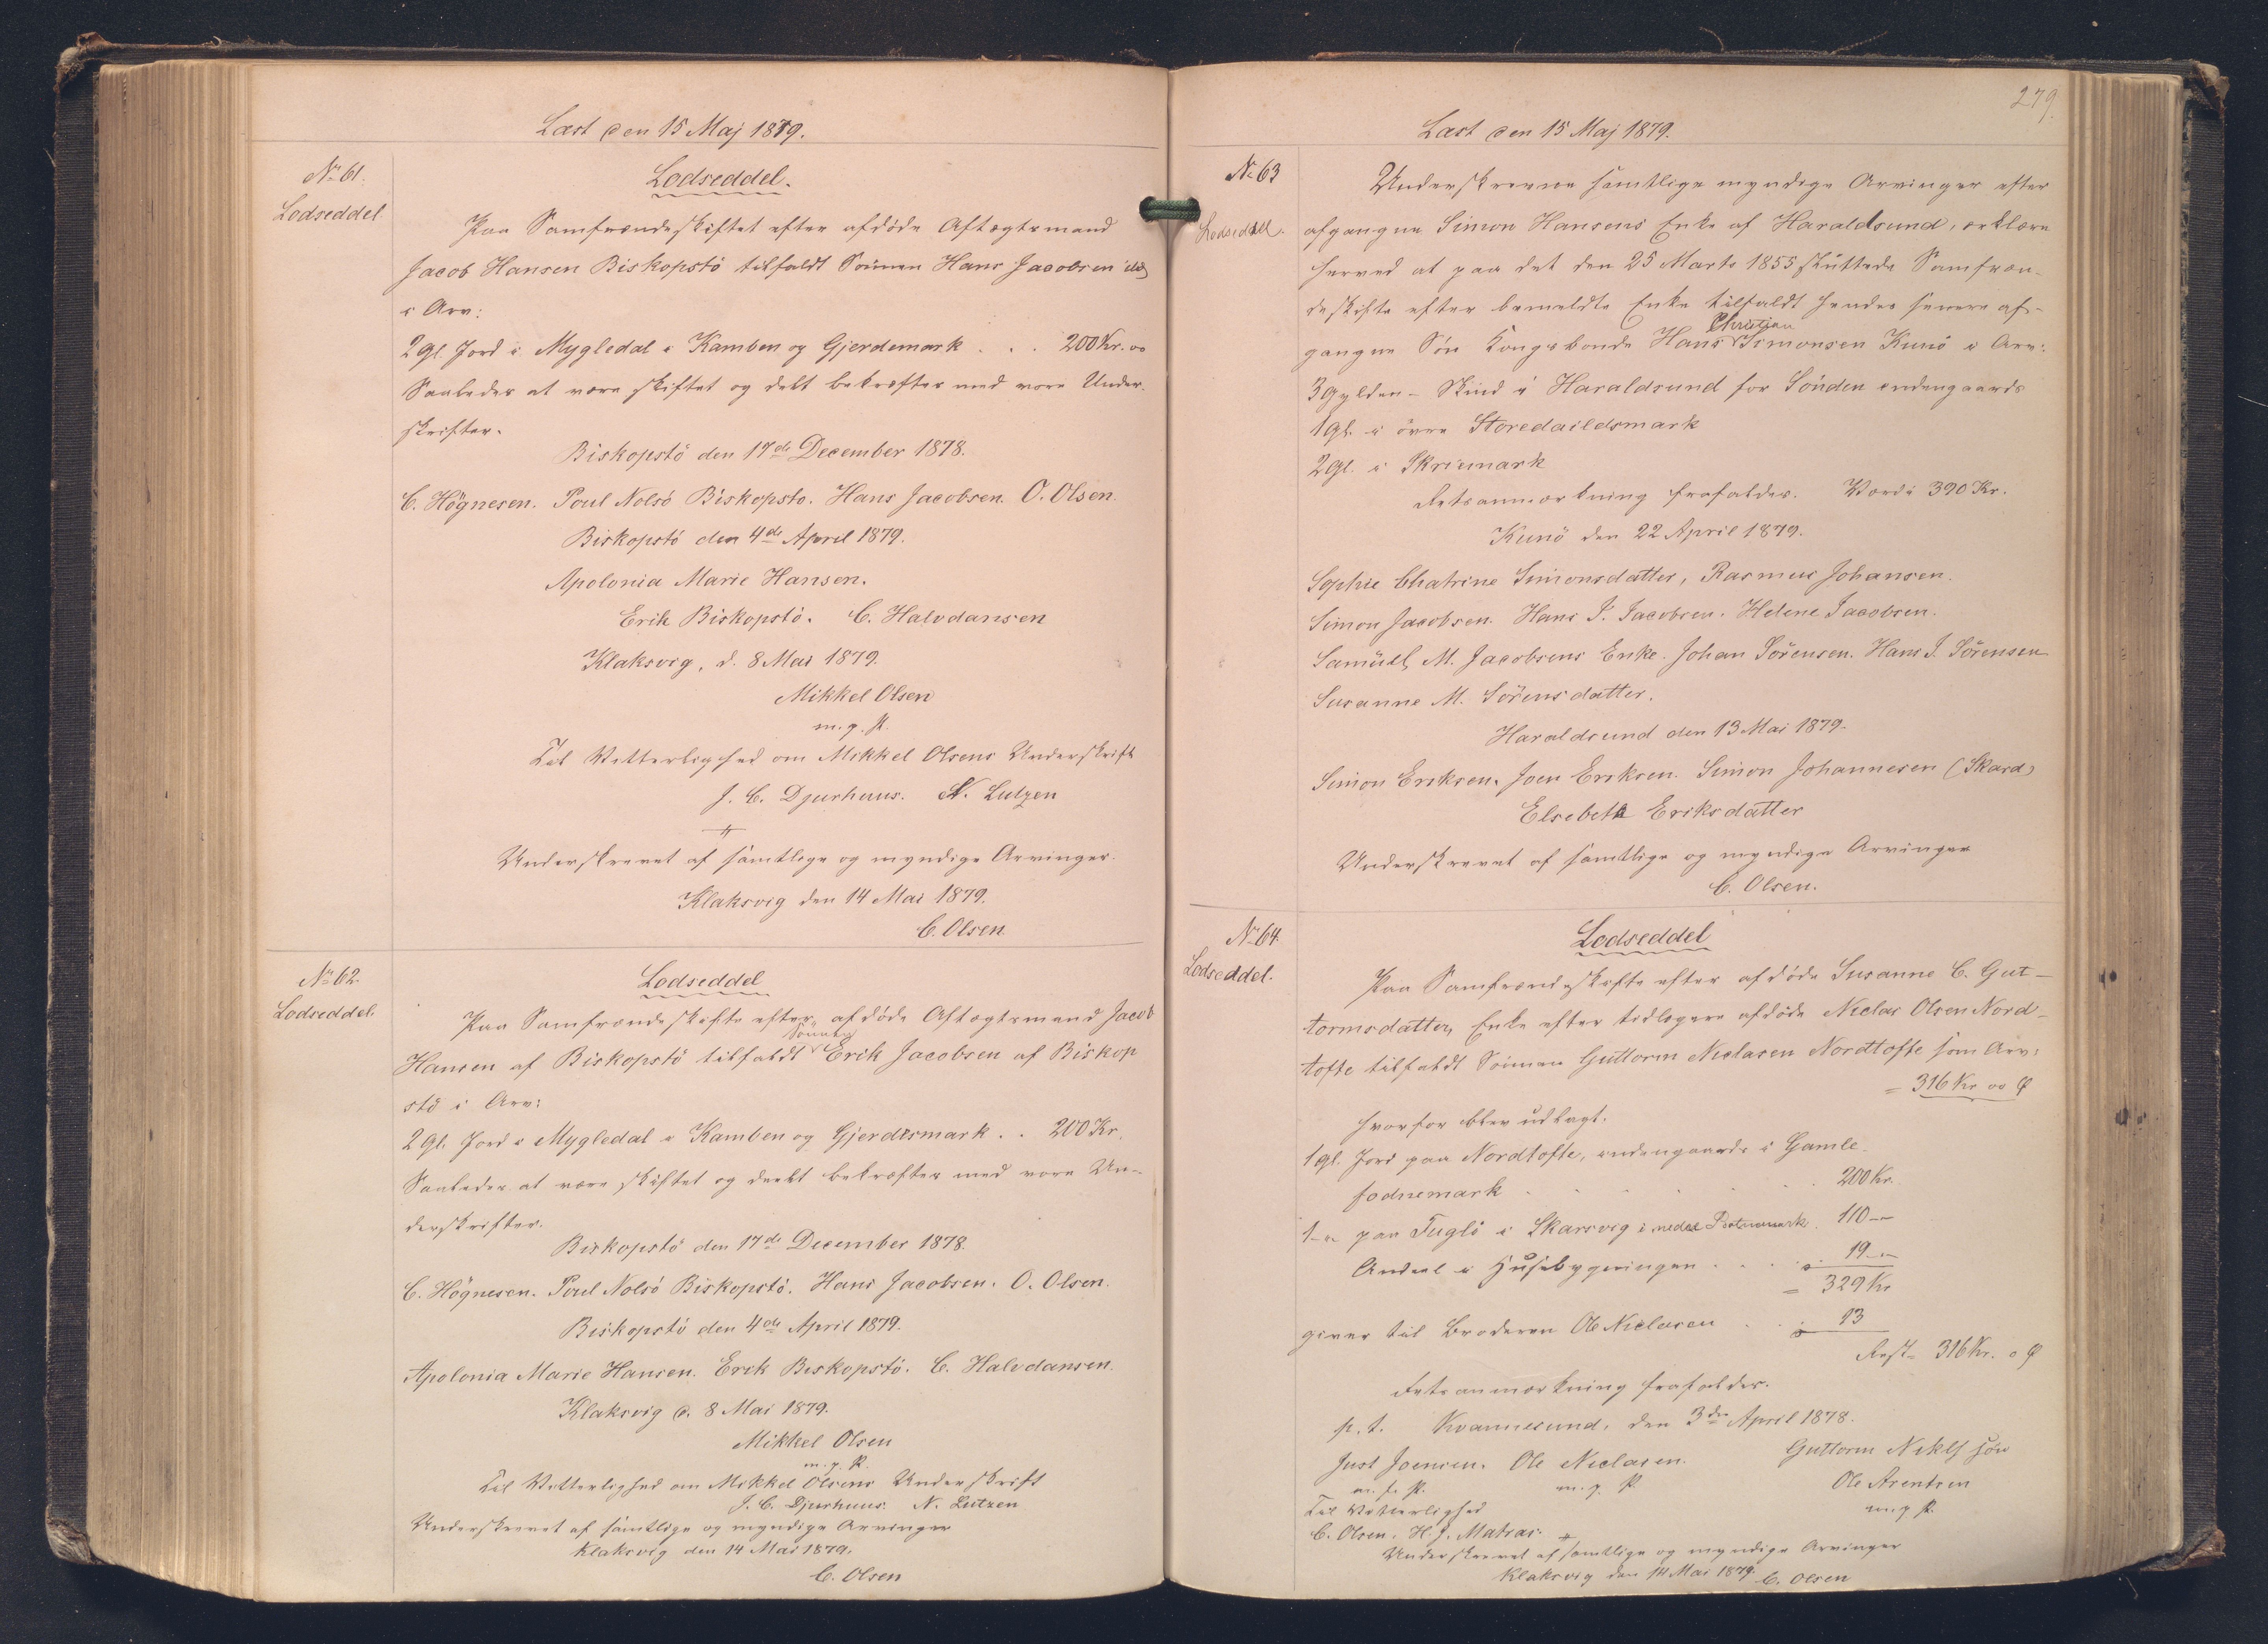 Læst den 15 Maj 1879.
No 61.
Lodseddel
Lodseddel.
Paa Samfrændeskiftet efter afdöde Aftægtsmand
Jacob Hansen Biskopstö tilfaldt Sönnen Hans Jacobsen ibd
i Arv:
2 Gl. Jord i Mygledal i Kamben og Gjerdemark . . . 200 Kr. oo
Saaledes at være skiftet og delt bekræftes med vore Under-
skrifter.
Biskopstö den 17de December 1878.
C. Högnesen. Poul Nolsö Biskopstö. Hans Jacobsen. O. Olsen.
Biskopstö den 4de April 1879.
Apolonia Marie Hansen.
Erik Biskopstö. C. Halvdansen
Klaksvig, d. 8 Mai 1879.
Mikkel Olsen
m. p. P.
Til Vitterlighed om Mikkel Olsens Underskrift
J. C. Djurhuus. N. Lutzen
Underskrevet af samtlige og myndige Arvinger.
Klaksvig den 14 Mai 1879.
C. Olsen
No 62.
Lodseddel.
Lodseddel
Paa Samfrændeskifte efter afdöde Aftægtsmand Jacob
Hansen af Biskopstö tilfaldt Sönnen Erik Jacobsen af Biskop
stö i Arv:
2 Gl. Jord i Mygledal i Kamben og Gjerdesmark . . 200 Kr.
Saaledes at være skiftet og deelt bekræftes med vore Un-
derskrifter.
Biskopstö den 17de December 1878.
C. Högnesen. Poul Nolsö Biskopstö. Hans Jacobsen. O. Olsen.
Biskopstö den 4de April 1879.
Apolonia Marie Hansen. Erik Biskopstö. C. Halvdansen.
Klaksvig d. 8 Mai 1879.
Mikkel Olsen
m. p. P.
Til Vitterlighed om Mikkel Olsens Underskrift
J. C. Djurhuus. N. Lützen
Underskrevet af samtlige og myndige Arvinger
Klaksvig den 14 Mai 1879.
C. Olsen
279.
Læst den 15 Maj 1879.
No 63
Lodseddel.
Underskrevne samtlige myndige Arvinger efter
afgangne Simon Hansens Enke af Haraldsund, erklære
herved at paa det den 25 Marts 1855 sluttede Samfræn-
deskifte efter bemeldte Enke tilfaldt hendes senere af-
gangne Sön Kongsbonde Hans Christian Simonsen Kunö i Arv:
3 Gylden - Skind i Haraldsund for Sönden indengaards
1 Gl. i övre Storedaildsmark
2 Gl. i Skriumark
Retsanmærkning frafaldes. Værdi 390 Kr.
Kunö den 22 April 1879.
Sophie Chatrine Simonsdatter, Rasmus Johansen.
Simon Jacobsen. Hans J. Jacobsen. Helene Jacobsen.
Samüel M. Jacobsens Enke. Johan Sörensen. Hans J. Sörensen
Susanne M. Sörensdatter.
Haraldsund den 13 Mai 1879.
Simon Eriksen. Joen Eriksen. Simon Johannesen (Skard)
Elsebeth Eriksdatter
Underskrevet af samtlige og myndige Arvinger
C. Olsen.
No 64.
Lodseddel.
Lodseddel
Paa Samfrændeskifte efter afdöde Susanne C. Gut-
tormsdatter, Enke efter tidligere afdöde Niclas Olsen Nord-
tofte tilfaldt Sönnen Guttorm Niclasen Nordtofte som Arv:
= 316 Kr oo Ø
hvorfor blev udlagt:
1 Gl. Jord paa Nordtofte, indengaards i Gamle-
fodnemark . . . . . . 200 Kr.
1 - " paa Fuglö i Skarsvig i nedre 110 - "
Andeel i Husebygningen . . . . 19 - "
= 329 Kr
giver til Broderen Ole Niclasen . . 13
Rest = 316 Kr. o Ø
Retsanmærkning frafaldes.
p. t. Kvannesund, den 3die April 1878.
Just Joensen. Ole Niclasen. Guttorm Niklssön
m. f. P. m. p. P. Ole Arentsen
m. p P.
Til Vitterlighed
C. Olsen. H. J. Matras.
Underskrevet af samtlige og myndige Arvinger
Klaksvig den 14 Mai 1879. C. Olsen